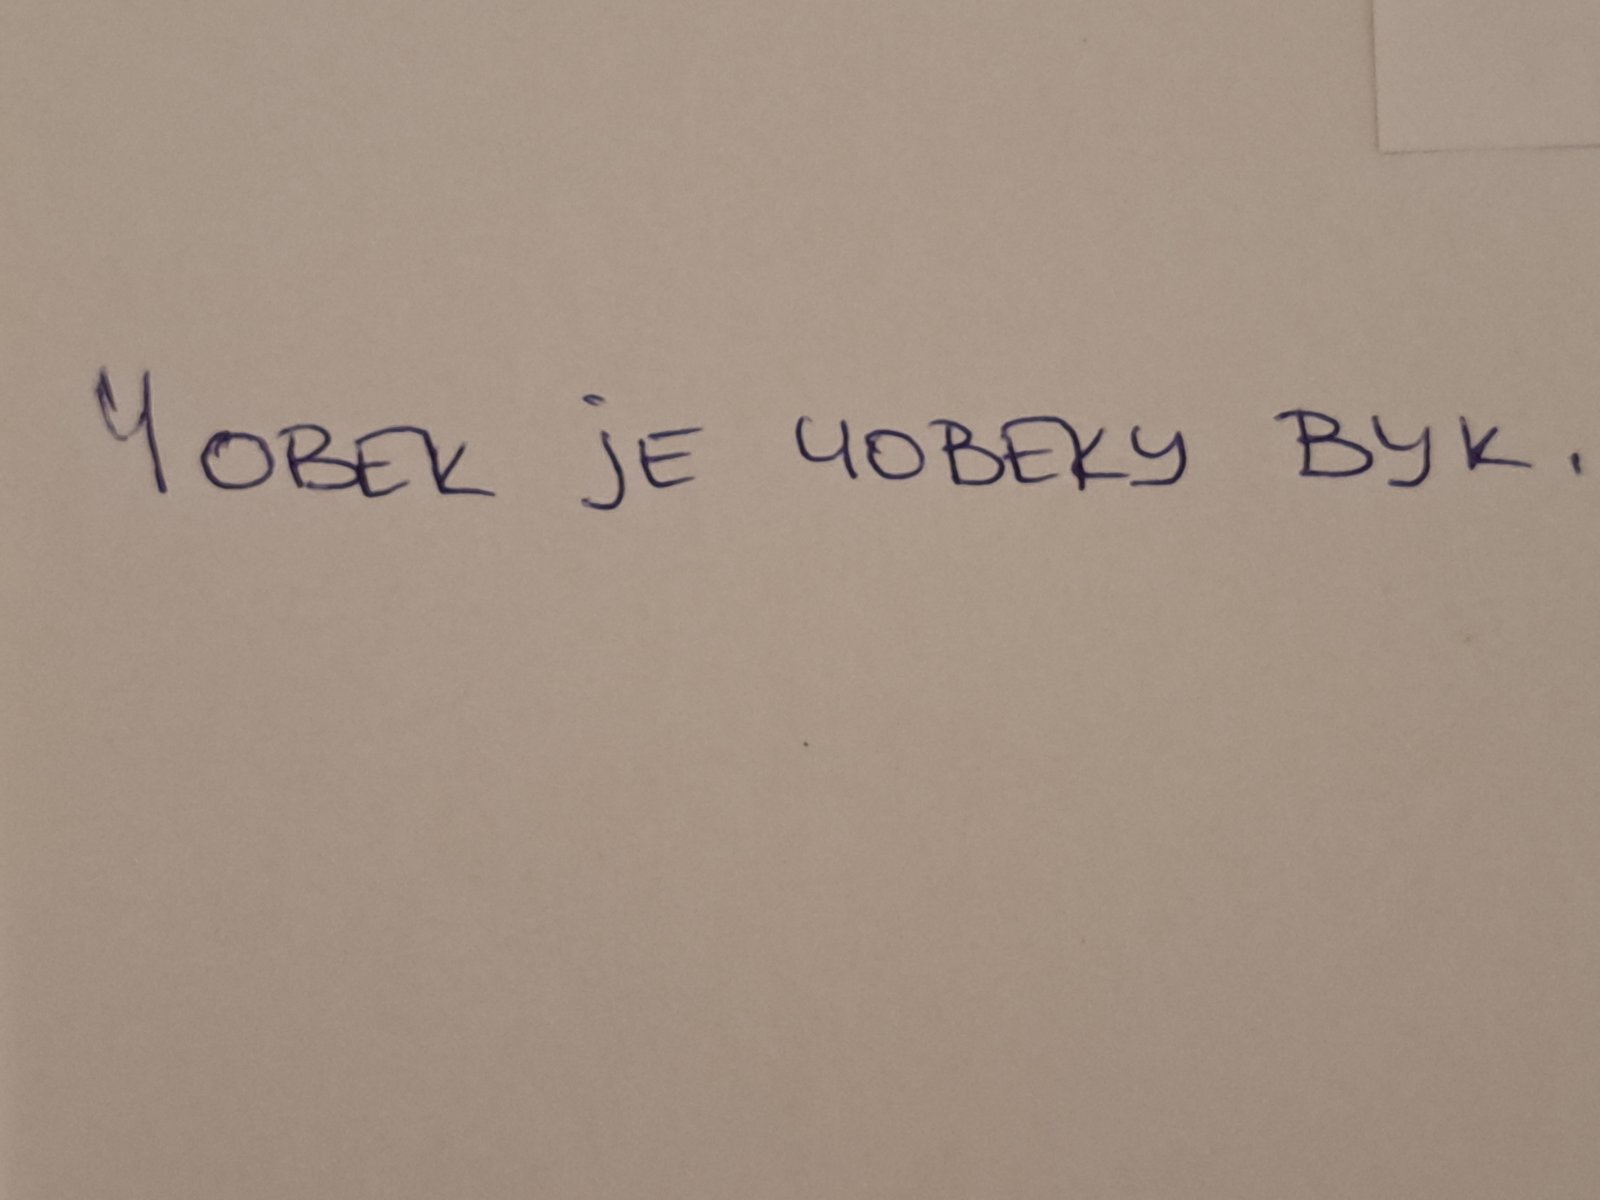 Човек је човеку вук.